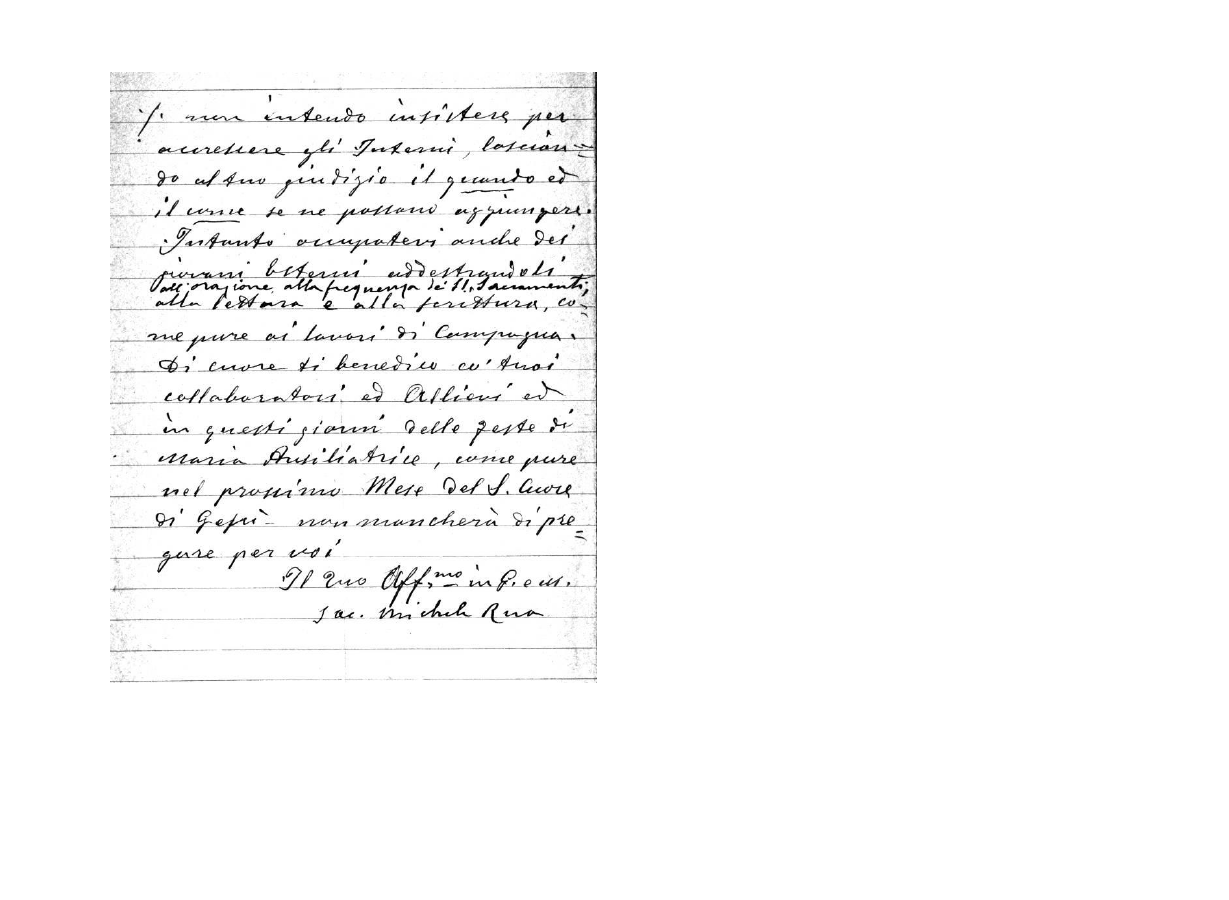 ./. non intendo insistere per
accrescere gli Interni, lascian=
do al tuo giudizio il quando ed
il come se ne possano aggiungere.
Intanto occupatevi anche dei
giovani Esterni addestrandoli
all'orazione, alla frequenza dei SS. Sacramenti,
alla lettura e alla scrittura, co=
me pure ai lavori di Campagna.
Di cuore ti benedico co' tuoi
collaboratori ed Allievi ed
in questi giorni delle feste di
Maria Ausiliatrice, come pure
nel prossimo Mese del S. Cuore
di Gesù - non mancherà di pre=
gare per voi
Il tuo Aff.mo in G. e M.
Sac. Michele Rua